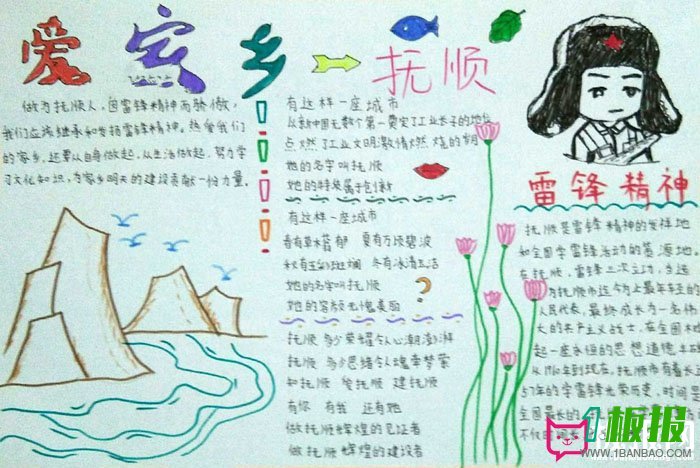 爱家乡 → 抚顺
做为抚顺人,因雷锋精神而骄傲,
我们应该继承和发扬雷锋精神。热爱我们
的家乡,还要从自身做起,从生活做起,努力学
习文化知识,为家乡明天的建设贡献一份力量。
有这样一座城市
从新中国无数个第一奠定了工业长子的地位
点燃了工业文明激情燃烧的
她的名字叫抚顺
她的特莫属于创新
有这样一座城市
春有草木蓊郁 夏有万顷碧波
秋有五彩斑斓 冬有冰清玉洁
她的名字叫抚顺
她的容颜无愧美丽
抚顺 多少荣耀令人心潮澎湃
抚顺 多少思绪令人魂牵梦萦
知抚顺 爱抚顺 建抚顺
有你 有我 还有她
做抚顺辉煌的见证者
做抚顺辉煌的建设者
雷锋精神
抚顺是雷锋精神的发祥地
和全国学雷锋活动的策源地。
在抚顺,雷锋三次立功,当选
为抚顺市迄今为止最年轻的
人民代表,最终成长为一名伟
大的共产主义战士,在全国
起一座永恒的思想道德丰
从1960年到现在,抚顺市有着长达
57年的学雷锋光荣历史,时间是
全国最长的
1板报
WWW.1BANBAO.COM